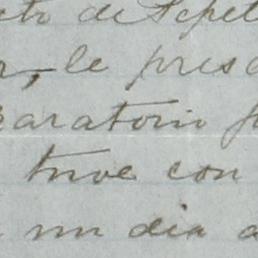 to de Repet
r, le pres
paratorio
tuve con
un dia a